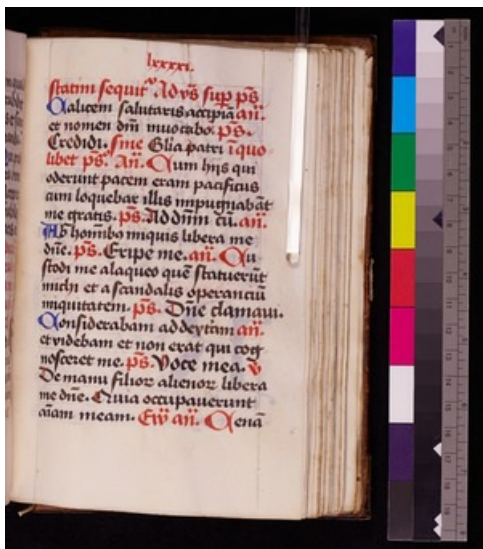 lxxxxi.
statim sequit᷑ Ad vs̄ sup ps̄
Calicem salutaris accipiā an̄.
et nomen dn̄i inuocabo. ps̄.
Credidi. sine Glia patri i quo
libet ps̄. An̄. Cum hijs qui
oderunt pacem eram pacificus
cum loquebar illis impugnabāt
me gratis. ps̄. Ad dn̄m cū. an̄.
Ab hom̄ibꝰ iniquis libera me
dn̄e. ps̄. Eripe me. an̄. Cu
stodi me alaqueo quē statuerūt
michi et a scandalis operanciū
iniquitatem. ps̄. Dn̄e clamaui.
Considerabam addextram an̄.
et videbam et non erat qui cog
nosceret me. ps̄. Voce mea. v̄
De manu filioꝝ alienoꝝ libera
me dn̄e. Quia occupauerunt
aīam meam. an̄. Cenā